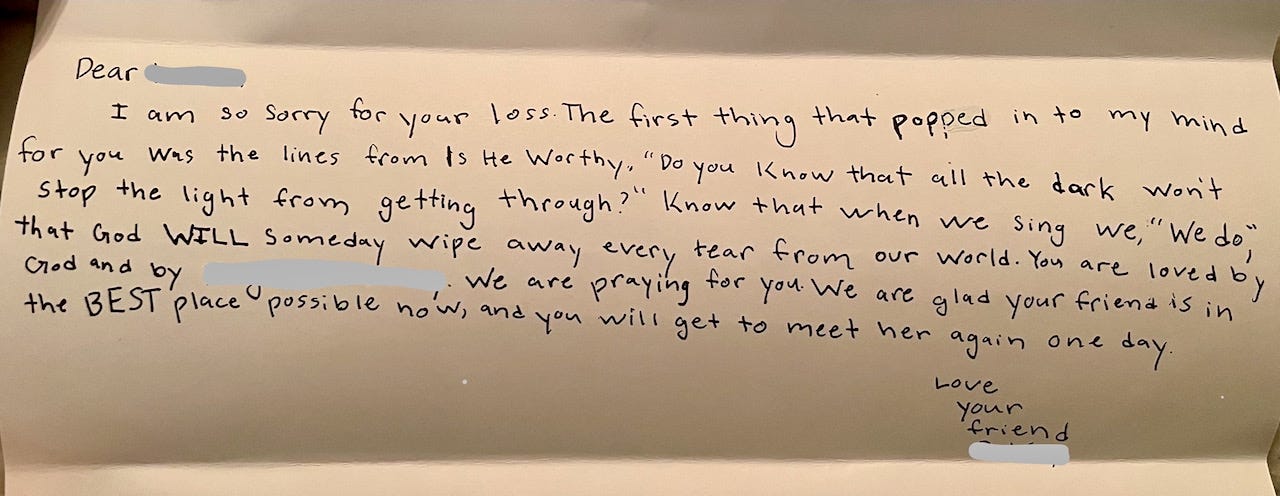 Dear
I am so sorry for your loss. The first thing that popped in to my mind
for you was the lines from Is He Worthy, "Do you know that all the dark won't
stop the light from getting through?" Know that when we sing we, "We do",
that God WILL someday wipe away every tear from our world. You are loved by
God and by . We are praying for you. We are glad your friend is in
the BEST place possible now, and you will get to meet her again one day.
Love
your
friend